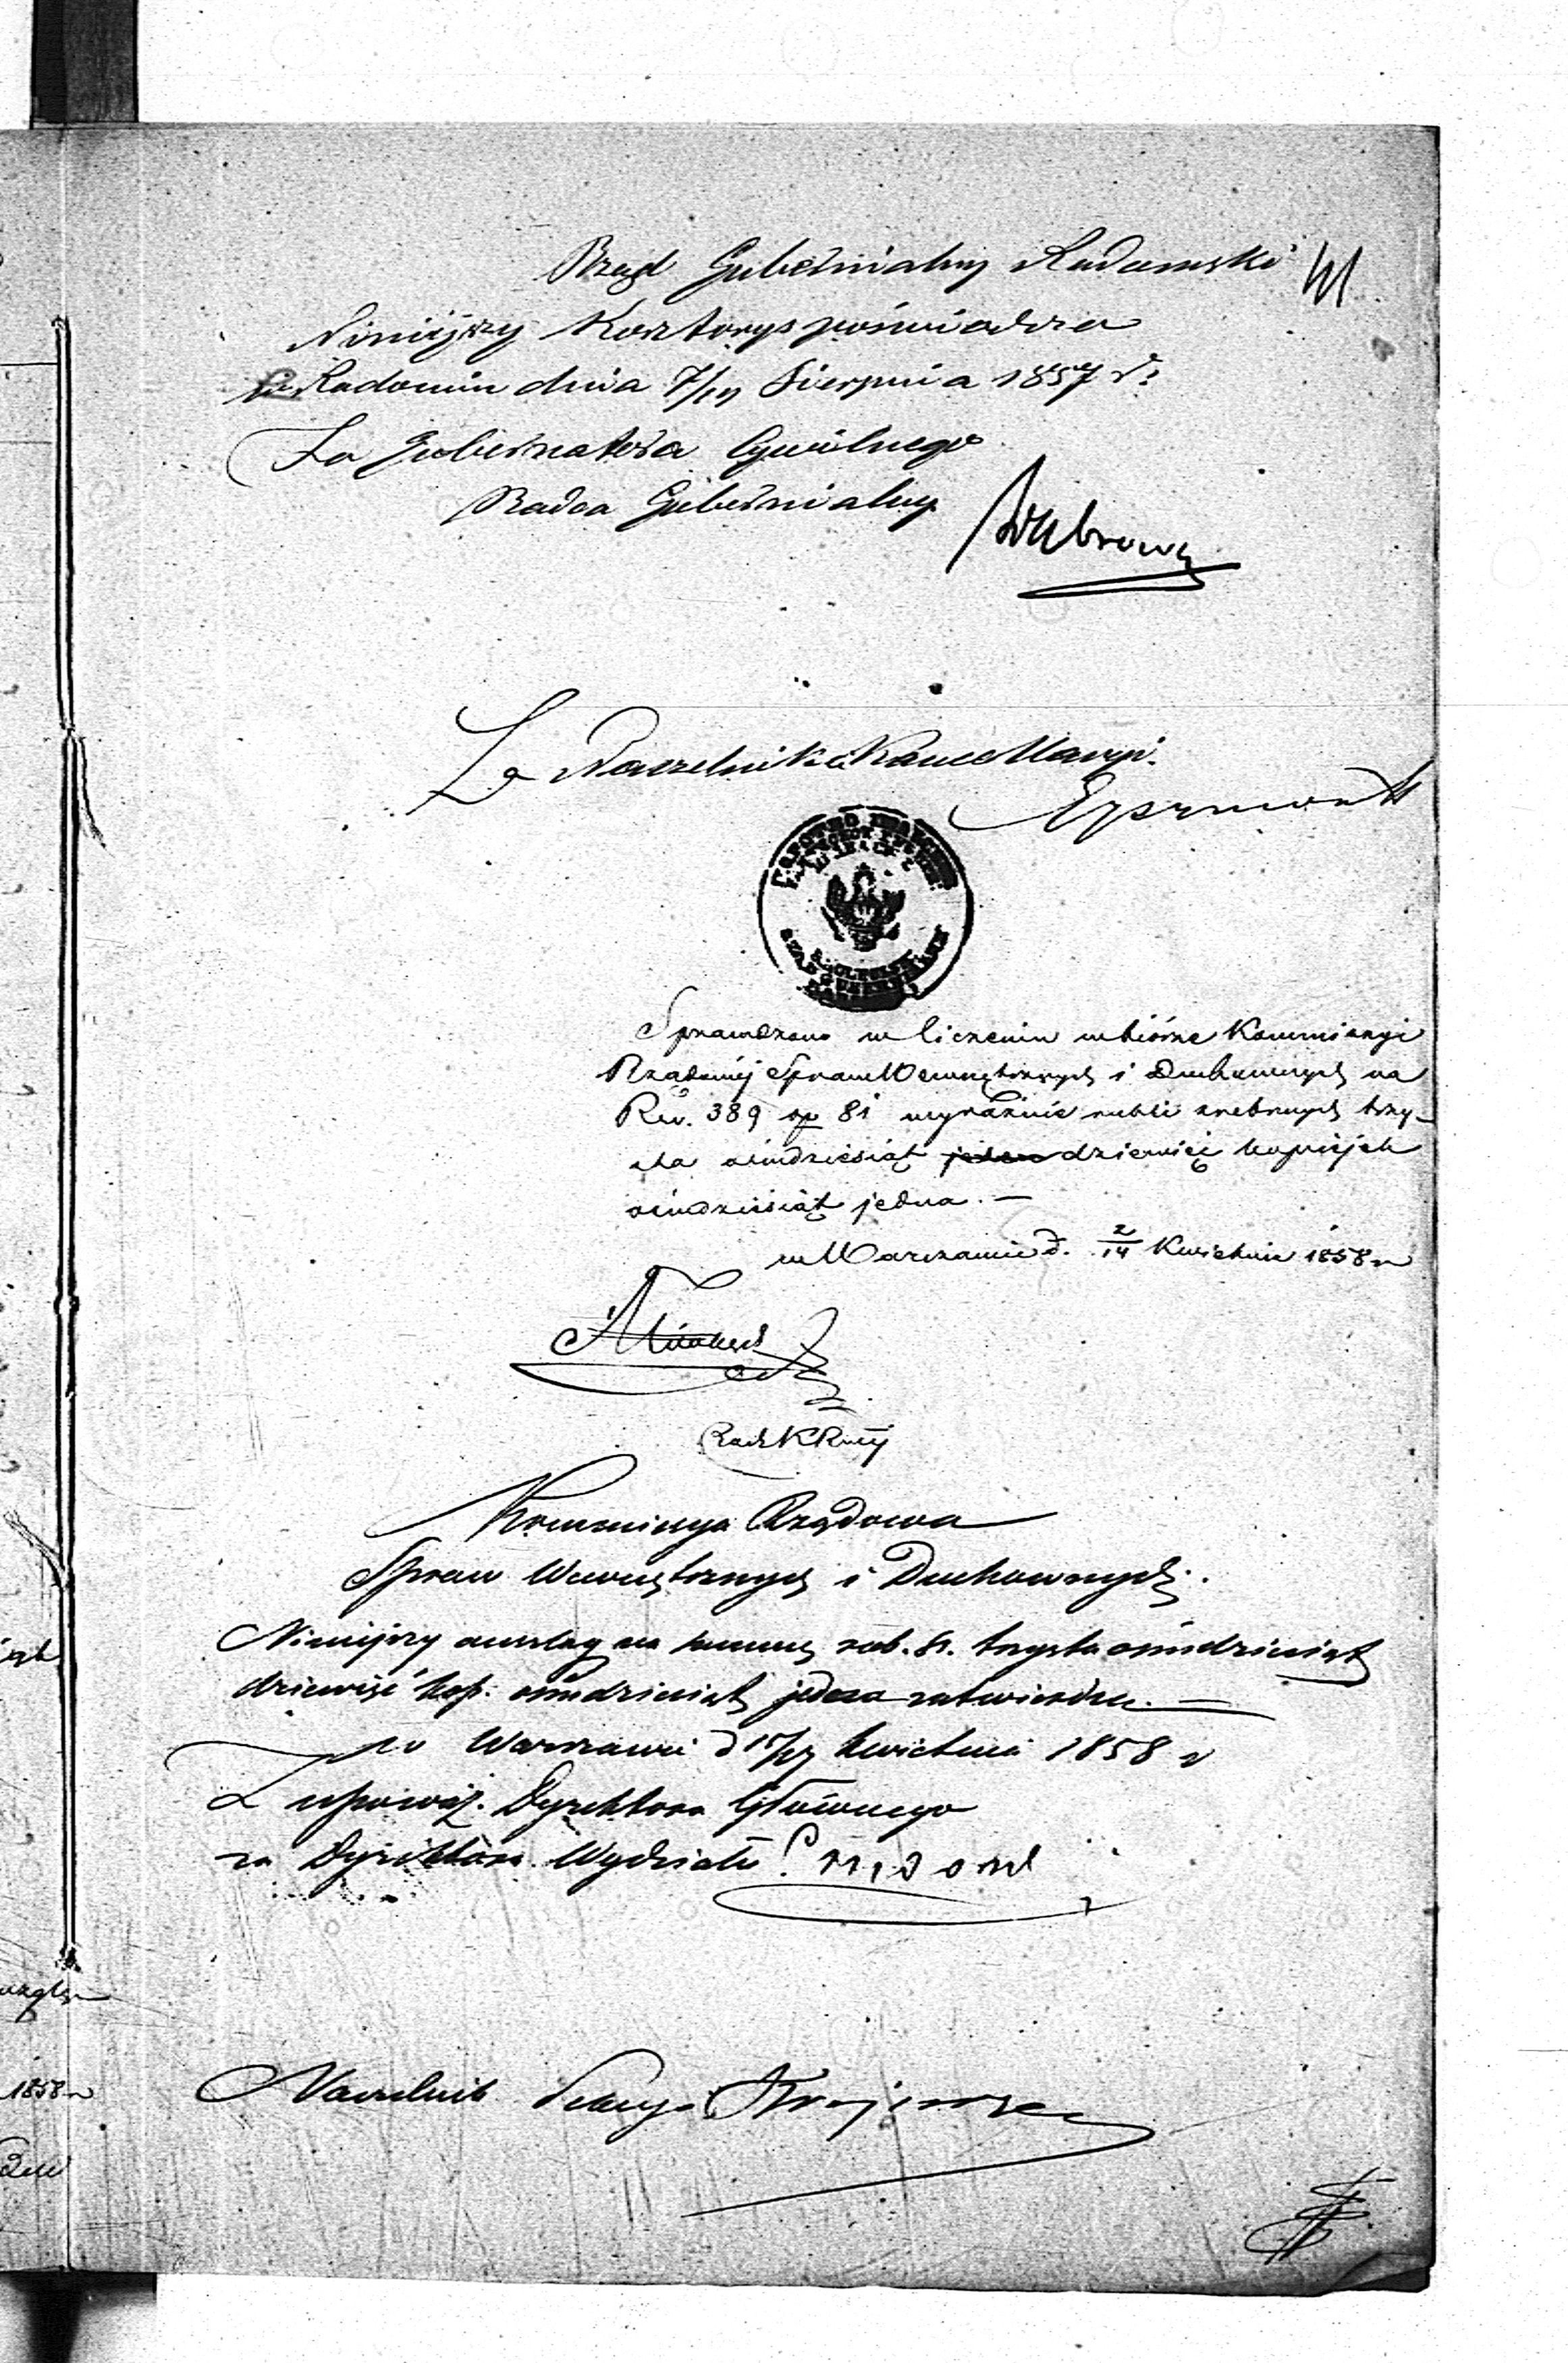 Rząd Gubernialny Radomski
41
Niniejszy Kosztorys poświadcza
w Radomiu dnia 7/19 Sierpnia 1857 r.
Za Gubernatora Cywilnego
Radca Gubernialny
Za Naczelnika Kancellaryi
Sprawdzono w liczeniu w biórze Kommissyi
Rządowéj Spraw Wewnętrznych i Duchownych na
Rsr. 389 kp 81 wyraźnie rubli srebrnych trzy-
sta ośmdziesiąt jeden dziewięć kopiejek
ośmdziesiąt jedna. —
w Warszawie d. 2/14 Kwietnia 1858 r
Kommissya Rządowa
Spraw Wewnętrznych i Duchownych.
Niniejszy anszlag na summę rub. sr. trzysta ośmdziesiąt
dziewięć kop. ośmdziesiąt jedna zatwierdza. —
w Warszawie d 15/27 Kwietnia 1858 r
Z upoważ. Dyrektora Głównego
za Dyrektora Wydziału
Naczelnik Sekcyi
1858 r